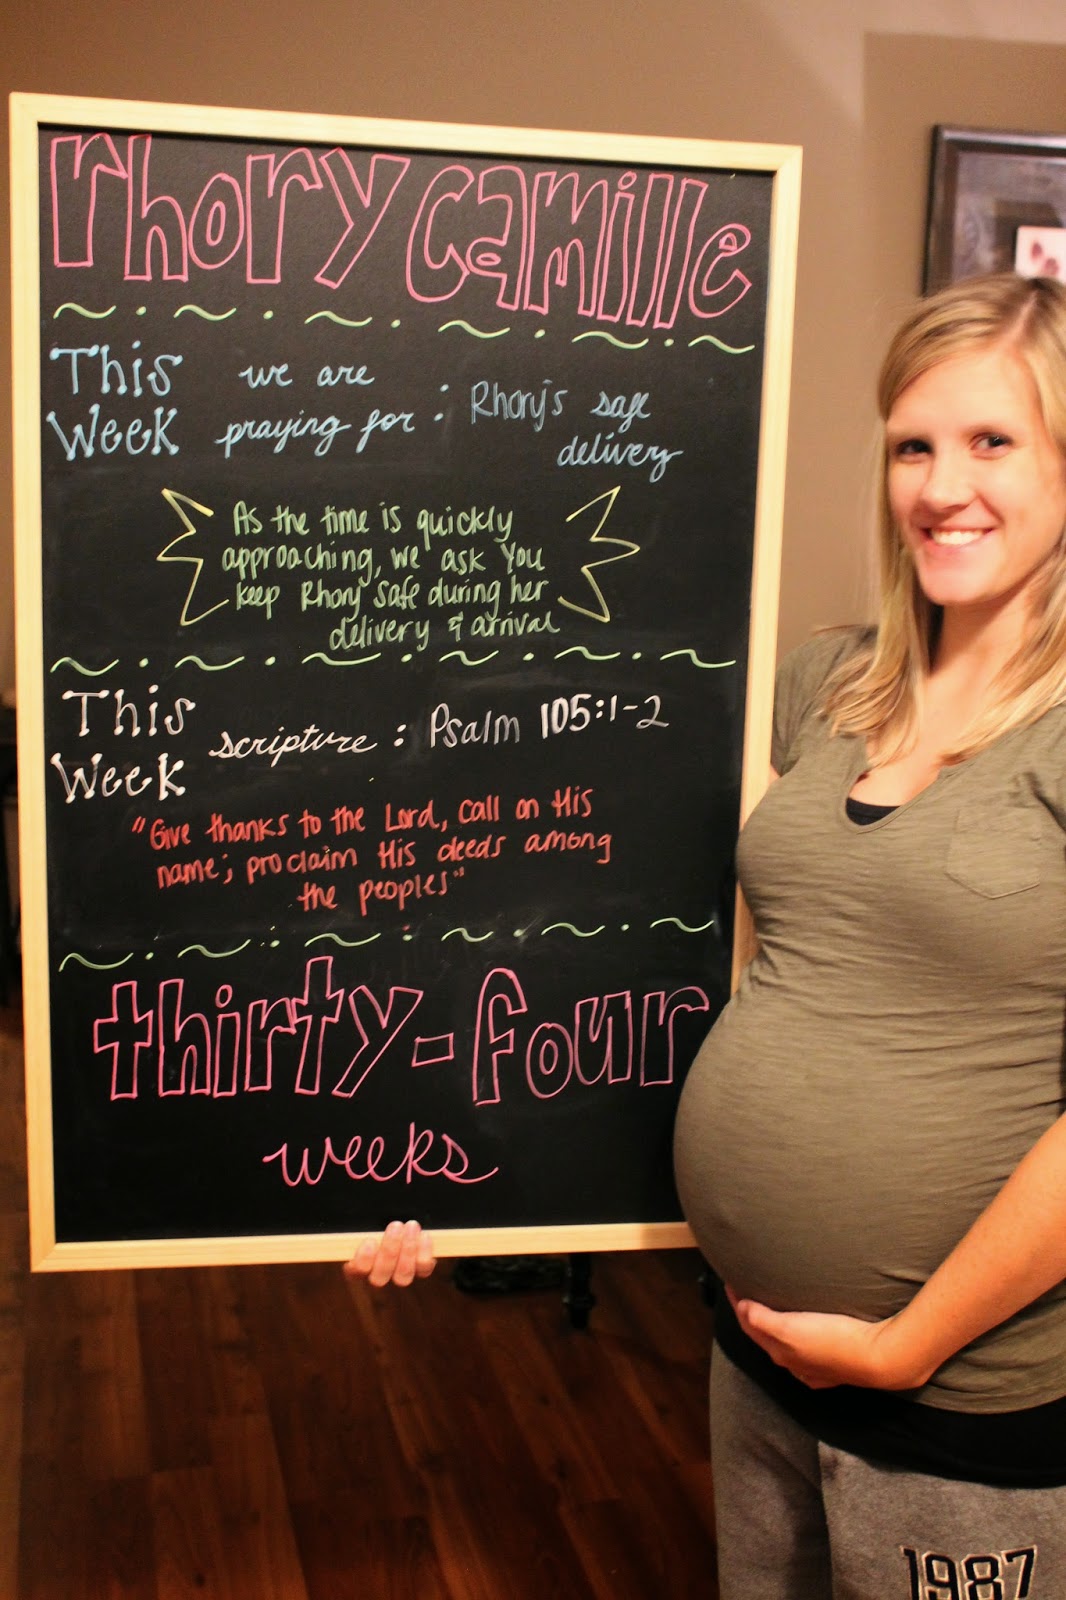 rhory camille
This we are
Week praying for: Rhory's safe
delivery
As the time is quickly
approaching, we ask You
keep Rhory safe during her
delivery & arrival
This
Week scripture: Psalm 105:1-2
"Give thanks to the Lord, call on His
name; proclaim His deeds among
the peoples"
thirty-four
weeks
1987